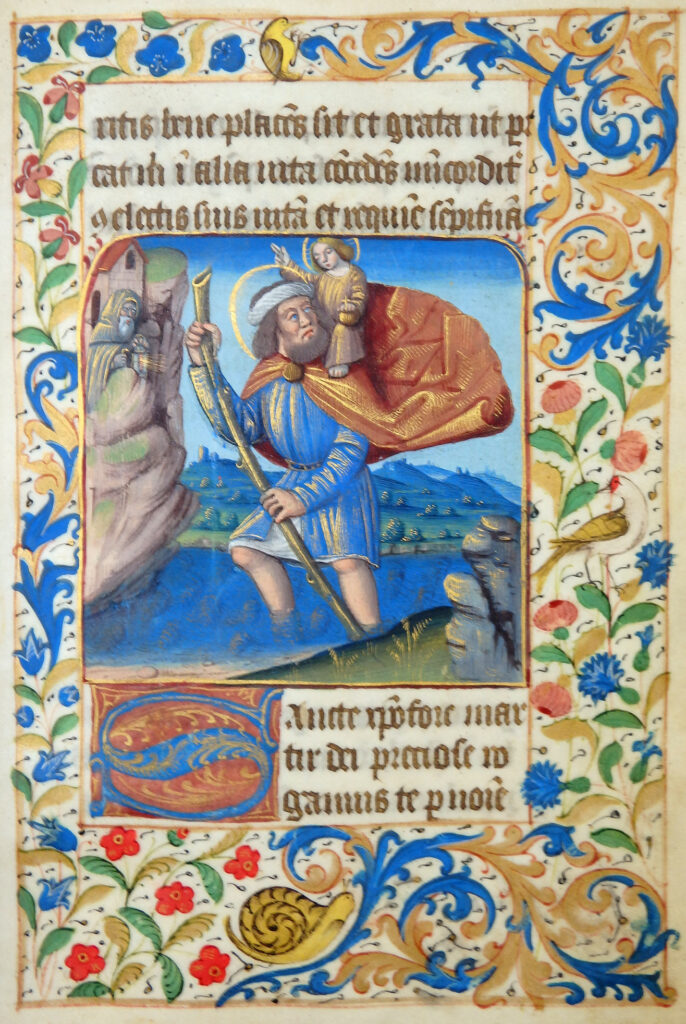 ritis bene placēs sit et grata ut pc
catis ī alia uita cōcedēs mīcordit̄
⁊ electis suis uitā et requiē sēpitnā
Sancte xp̄ofore mar
tir dei preciose ro
gamus te p noīe